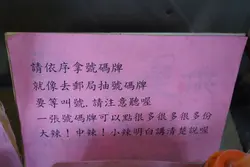 請依序拿號碼牌
就像去郵局抽號碼牌
要等叫號.請注意聽喔
一張號碼牌可以點很多很多很多份
大辣!中辣!小辣明白講清楚說喔